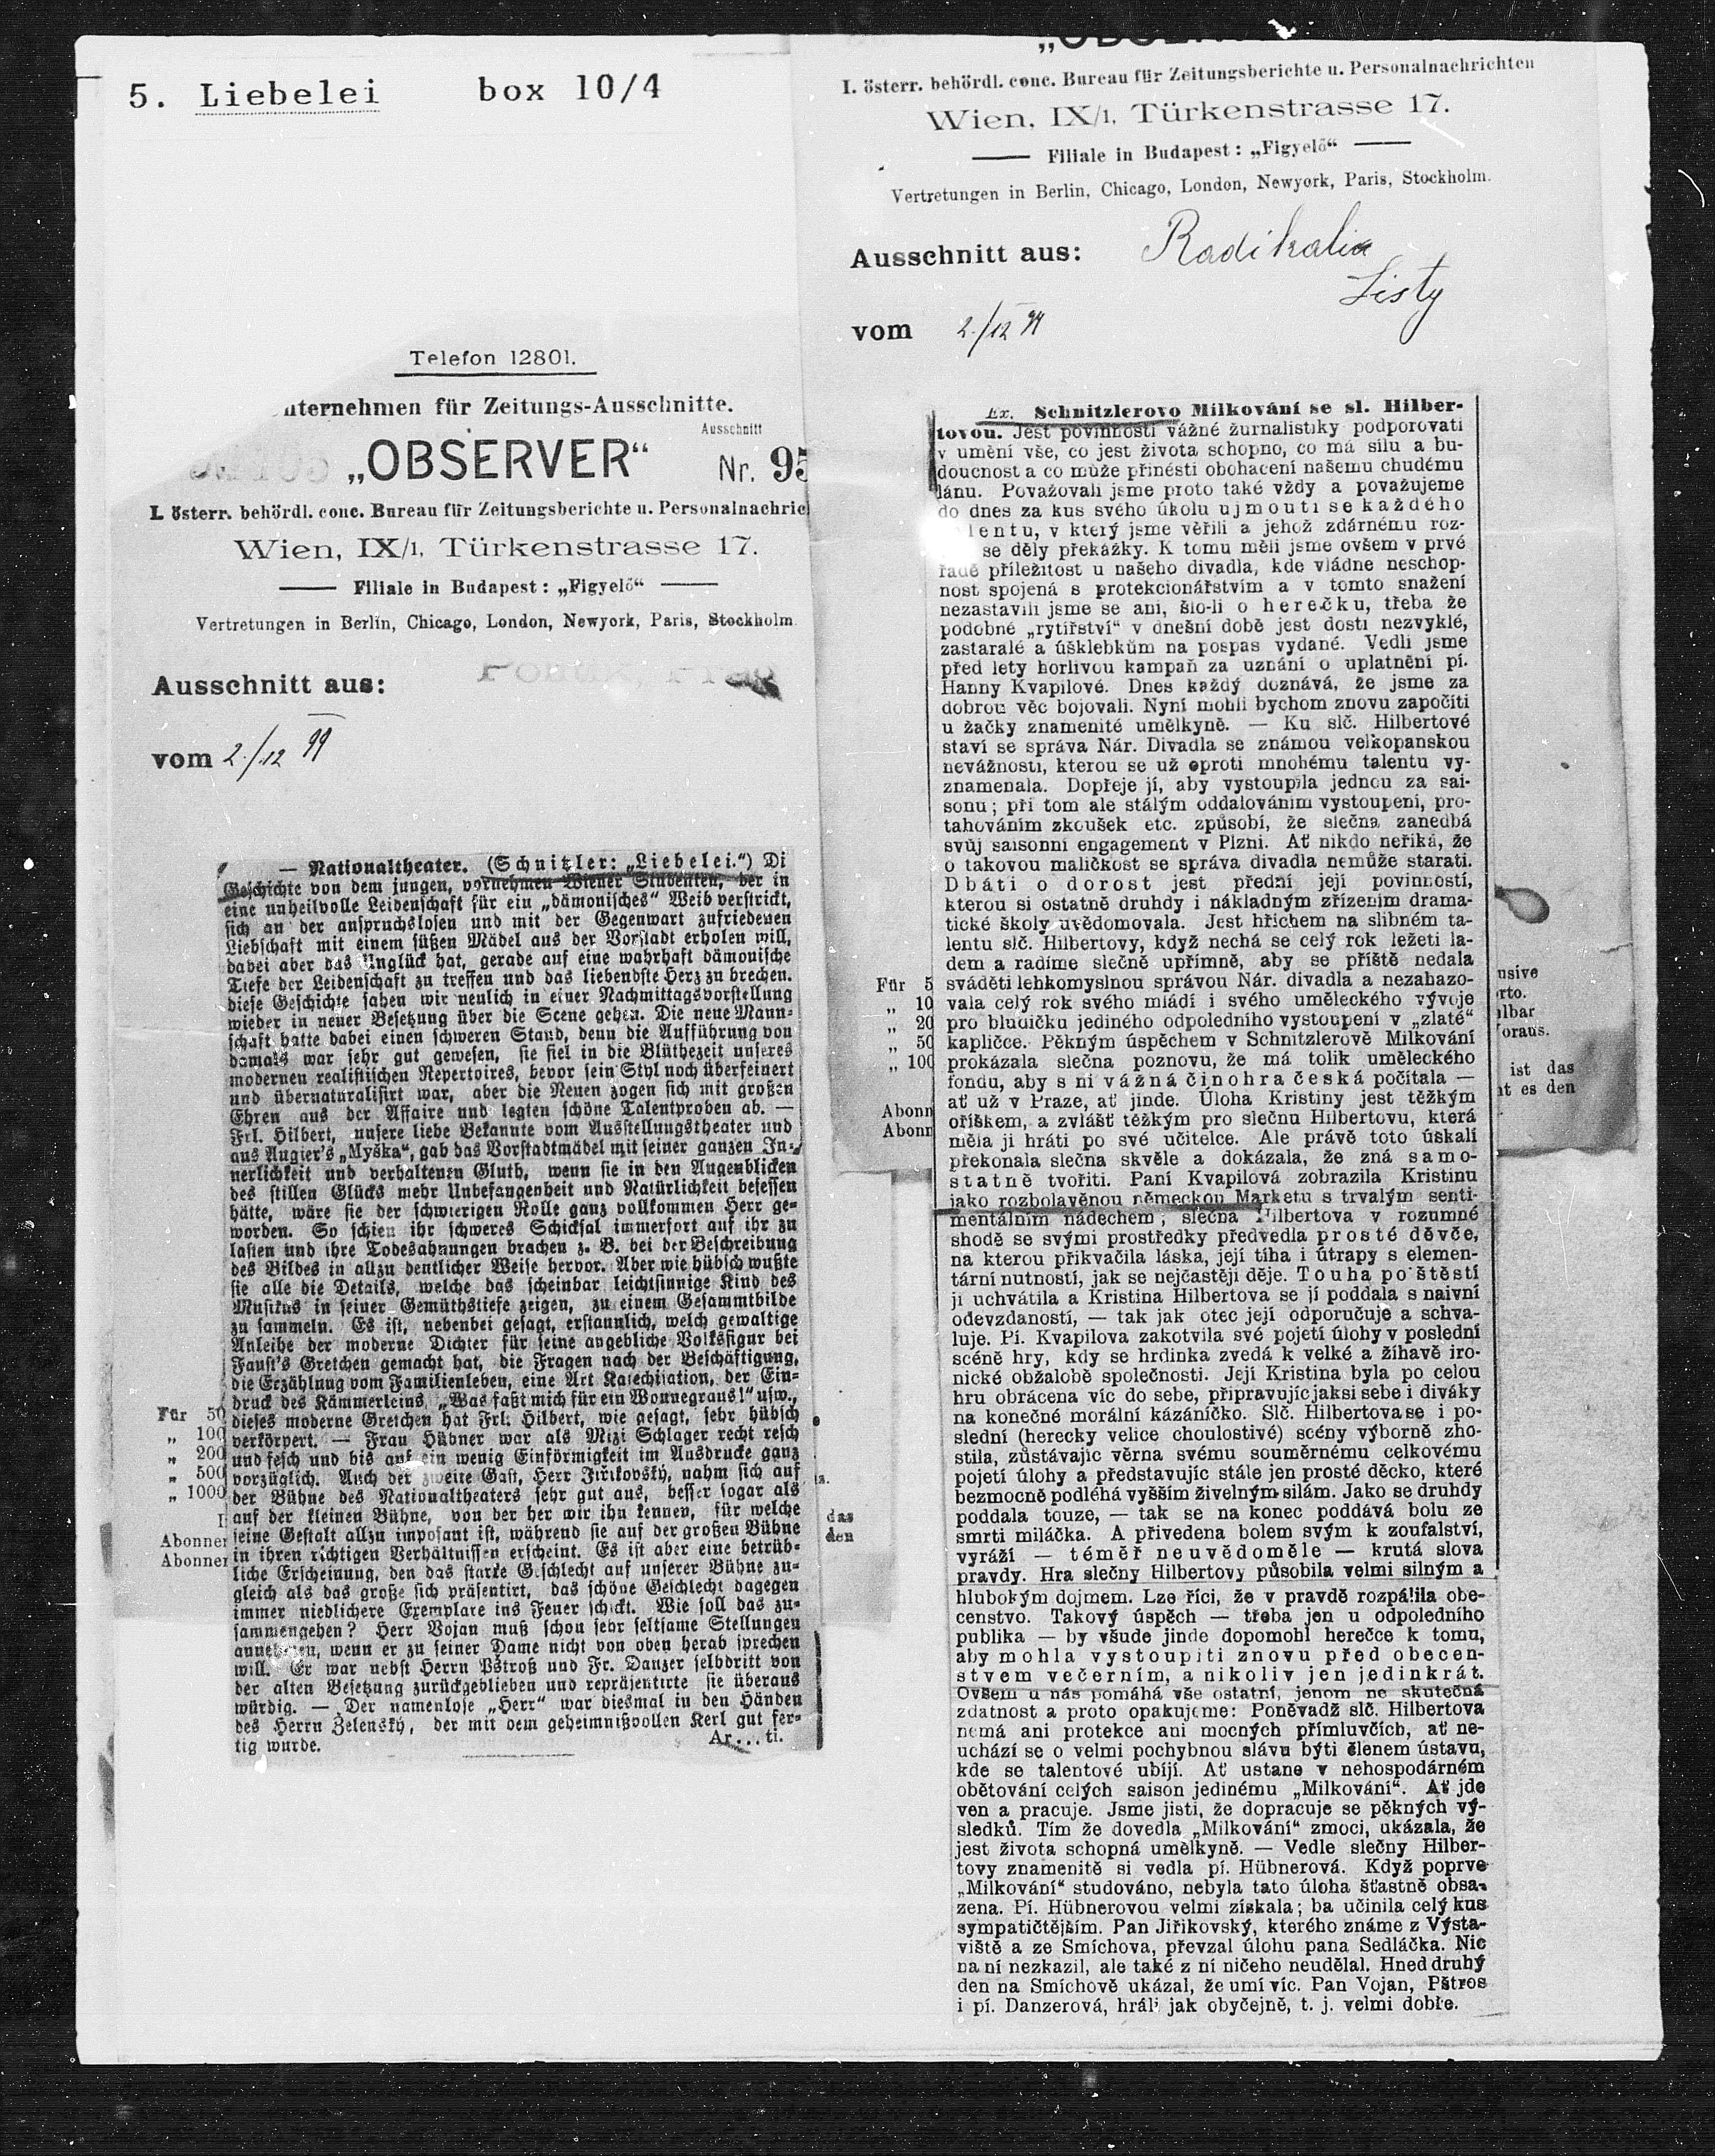 5. Liebelei box 10/4
Telefon 12801.
nternehmen für Zeitungs-Ausschnitte.
Ausschnitt
„OBSERVER“ Nr. 95
I. österr. behördl. conc. Bureau für Zeitungsberichte u. Personalnachric
Wien, IX/1, Türkenstrasse 17.
Filiale in Budapest: „Figyelő“
Vertretungen in Berlin, Chicago, London, Newyork, Paris, Stockholm.
Ausschnitt aus:
vom 2./12 99
— Nationaltheater. (Schnitzler: „Liebelei.“) Di
Geschichte von dem jungen, vornehmen Wiener Studenten, der in
eine unheilvolle Leidenschaft für ein „dämonisches“ Weib verstrickt,
sich an der anspruchslosen und mit der Gegenwart zufriedenen
Liebschaft mit einem süßen Mädel aus der Vorstadt erholen will,
dabei aber das Unglück hat, gerade auf eine wahrhaft dämonische
Tiefe der Leidenschaft zu treffen und das liebendste Herz zu brechen.
diese Geschichte sahen wir neulich in einer Nachmittagsvorstellung
wieder in neuer Besetzung über die Scene gehen. Die neue Mann-
schaft hatte dabei einen schweren Stand, denn die Aufführung von
damals war sehr gut gewesen, sie fiel in die Blüthezeit unseres
modernen realistischen Repertoires, bevor sein Styl noch überfeinert
und übernaturalisirt war, aber die Neuen zogen sich mit großen
Ehren aus der Affaire und legten schöne Talentproben ab. —
Frl. Hilbert, unsere liebe Bekannte vom Ausstellungstheater und
aus Augier's „Myška“, gab das Vorstadtmädel mit seiner ganzen In-
nerlichkeit und verhaltenen Gluth, wenn sie in den Augenblicken
des stillen Glücks mehr Unbefangenheit und Natürlichkeit besessen
hätte, wäre sie der schwierigen Rolle ganz vollkommen Herr ge-
worden. So schien ihr schweres Schicksal immerfort auf ihr zu
lasten und ihre Todesahnungen brachen z. B. bei der Beschreibung
des Bildes in allzu deutlicher Weise hervor. Aber wie hübsch wußte
sie alle die Details, welche das scheinbar leichtsinnige Kind des
Musikus in seiner Gemüthstiefe zeigen, zu einem Gesammtbilde
zu sammeln. Es ist, nebenbei gesagt, erstaunlich, welch gewaltige
Anleihe der moderne Dichter für seine angebliche Volksfigur bei
Faust's Gretchen gemacht hat, die Fragen nach der Beschäftigung,
die Erzählung vom Familienleben, eine Art Katechisation, der Ein-
druck des Kämmerleins „Was faßt mich für ein Wonnegraus!“ usw.,
dieses moderne Gretchen hat Frl. Hilbert, wie gesagt, sehr hübsch
verkörpert. — Frau Hübner war als Mizi Schlager recht resch
und fesch und bis auf ein wenig Einförmigkeit im Ausdrucke ganz
vorzüglich. Auch der zweite Gast, Herr Jiřikovský, nahm sich auf
der Bühne des Nationaltheaters sehr gut aus, besser sogar als
auf der kleinen Bühne, von der her wir ihn kennen, für welche
seine Gestalt allzu imposant ist, während sie auf der großen Bühne
in ihren richtigen Verhältnissen erscheint. Es ist aber eine betrüb-
liche Erscheinung, den das starke Geschlecht auf unserer Bühne zu-
gleich als das große sich präsentirt, das schöne Geschlecht dagegen
immer niedlichere Exemplare ins Feuer schickt. Wie soll das zu-
sammengehen? Herr Vojan muß schon sehr seltsame Stellungen
annehmen, wenn er zu seiner Dame nicht von oben herab sprechen
will. Er war nebst Herrn Pštroß und Fr. Danzer selbdritt von
der alten Besetzung zurückgeblieben und repräsentirte sie überaus
würdig. — Der namenlose „Herr“ war diesmal in den Händen
des Herrn Želenský, der mit dem geheimnißvollen Kerl gut fer-
tig wurde. Ar...ti.
Für 50
„ 100
„ 200
„ 500
„ 1000
Abonner
Abonner
das
den
I. österr. behördl. conc. Bureau für Zeitungsberichte u. Personalnachrichten
Wien, IX/1, Türkenstrasse 17.
Filiale in Budapest: „Figyelő“
Vertretungen in Berlin, Chicago, London, Newyork, Paris, Stockholm.
Ausschnitt aus: Radikalia
Listy
vom 2./12 99
Ex. Schnitzlerovo Milkování se sl. Hilber-
tovou. Jest povinností vážné žurnalistiky podporovati
v umění vše, co jest života schopno, co má sílu a bu-
doucnost a co může přinésti obohacení našemu chudému
lánu. Považovali jsme proto také vždy a považujeme
do dnes za kus svého úkolu ujmouti se každého
lentu, v který jsme věřili a jehož zdárnému roz-
se děly překážky. K tomu měli jsme ovšem v prvé
řadě příležitost u našeho divadla, kde vládne neschop-
nost spojená s protekcionářstvím a v tomto snažení
nezastavili jsme se ani, šlo-li o herečku, třeba že
podobné „rytířství“ v dnešní době jest dosti nezvyklé,
zastaralé a úšklebkům na pospas vydané. Vedli jsme
před lety horlivou kampaň za uznání o uplatnění pí.
Hanny Kvapilové. Dnes každý doznává, že jsme za
dobrou věc bojovali. Nyní mohli bychom znovu započíti
u žačky znamenité umělkyně. — Ku slč. Hilbertové
staví se správa Nár. Divadla se známou velkopanskou
nevážností, kterou se už oproti mnohému talentu vy-
znamenala. Dopřeje jí, aby vystoupila jednou za sai-
sonu; při tom ale stálým oddalováním vystoupení, pro-
tahováním zkoušek etc. způsobí, že slečna zanedbá
svůj saisonní engagement v Plzni. Ať nikdo neříká, že
o takovou maličkost se správa divadla nemůže starati.
Dbáti o dorost jest přední její povinností,
kterou si ostatně druhdy i nákladným zřízením drama-
tické školy uvědomovala. Jest hříchem na slibném ta-
lentu slč. Hilbertovy, když nechá se celý rok ležeti la-
dem a radíme slečně upřímně, aby se příště nedala
sváděti lehkomyslnou správou Nár. divadla a nezahazo-
vala celý rok svého mládí i svého uměleckého vývoje
pro bludičku jediného odpoledního vystoupení v „zlaté“
kapličce. Pěkným úspěchem v Schnitzlerově Milkování
prokázala slečna poznovu, že má tolik uměleckého
fondu, aby s ní vážná činohra česká počítala —
ať už v Praze, ať jinde. Úloha Kristiny jest těžkým
oříškem, a zvlášť těžkým pro slečnu Hilbertovu, která
měla ji hráti po své učitelce. Ale právě toto úskalí
překonala slečna skvěle a dokázala, že zná samo-
statně tvořiti. Paní Kvapilová zobrazila Kristinu
jako rozbolavěnou německou Marketu s trvalým senti-
mentálním nádechem; slečna Hilbertova v rozumné
shodě se svými prostředky předvedla prosté děvče,
na kterou přikvačila láska, její tíha i útrapy s elemen-
tární nutností, jak se nejčastěji děje. Touha po štěstí
ji uchvátila a Kristina Hilbertova se jí poddala s naivní
odevzdaností, — tak jak otec její odporučuje a schva-
luje. Pí. Kvapilova zakotvila své pojetí úlohy v poslední
scéně hry, kdy se hrdinka zvedá k velké a žíhavě iro-
nické obžalobě společnosti. Její Kristina byla po celou
hru obrácena víc do sebe, připravujíc jaksi sebe i diváky
na konečné morální kázáníčko. Slč. Hilbertova se i po-
slední (herecky velice choulostivé) scény výborně zho-
stila, zůstávajíc věrna svému souměrnému celkovému
pojetí úlohy a představujíc stále jen prosté děcko, které
bezmocně podléhá vyšším živelným silám. Jako se druhdy
poddala touze, — tak se na konec poddává bolu ze
smrti miláčka. A přivedena bolem svým k zoufalství,
vyráží — téměř neuvědoměle — krutá slova
pravdy. Hra slečny Hilbertovy působila velmi silným a
hlubokým dojmem. Lze říci, že v pravdě rozpálila obe-
censtvo. Takový úspěch — třeba jen u odpoledního
publika — by všude jinde dopomohl herečce k tomu,
aby mohla vystoupiti znovu před obecen-
stvem večerním, a nikoliv jen jedinkrát.
Ovšem u nás pomáhá vše ostatní, jenom ne skutečná
zdatnost a proto opakujeme: Poněvadž slč. Hilbertova
nemá ani protekce ani mocných přímluvčích, ať ne-
uchází se o velmi pochybnou slávu býti členem ústavu,
kde se talentové ubíjí. Ať ustane v nehospodárném
obětování celých saison jedinému „Milkování“. Ať jde
ven a pracuje. Jsme jisti, že dopracuje se pěkných vý-
sledků. Tím že dovedla „Milkování“ zmoci, ukázala, že
jest života schopná umělkyně. — Vedle slečny Hilber-
tovy znamenitě si vedla pí. Hübnerová. Když poprve
„Milkování“ studováno, nebyla tato úloha šťastně obsa-
zena. Pí. Hübnerovou velmi získala; ba učinila celý kus
sympatičtějším. Pan Jiřikovský, kterého známe z Výsta-
viště a ze Smíchova, převzal úlohu pana Sedláčka. Nic
na ní nezkazil, ale také z ní ničeho neudělal. Hned druhý
den na Smíchově ukázal, že umí víc. Pan Vojan, Pštros
i pí. Danzerová, hráli jak obyčejně, t. j. velmi dobře.
Für 5
„ 10
„ 20
„ 50
„ 100
Abonn
Abonn
nsive
rto.
lbar
oraus.
ist das
t es den